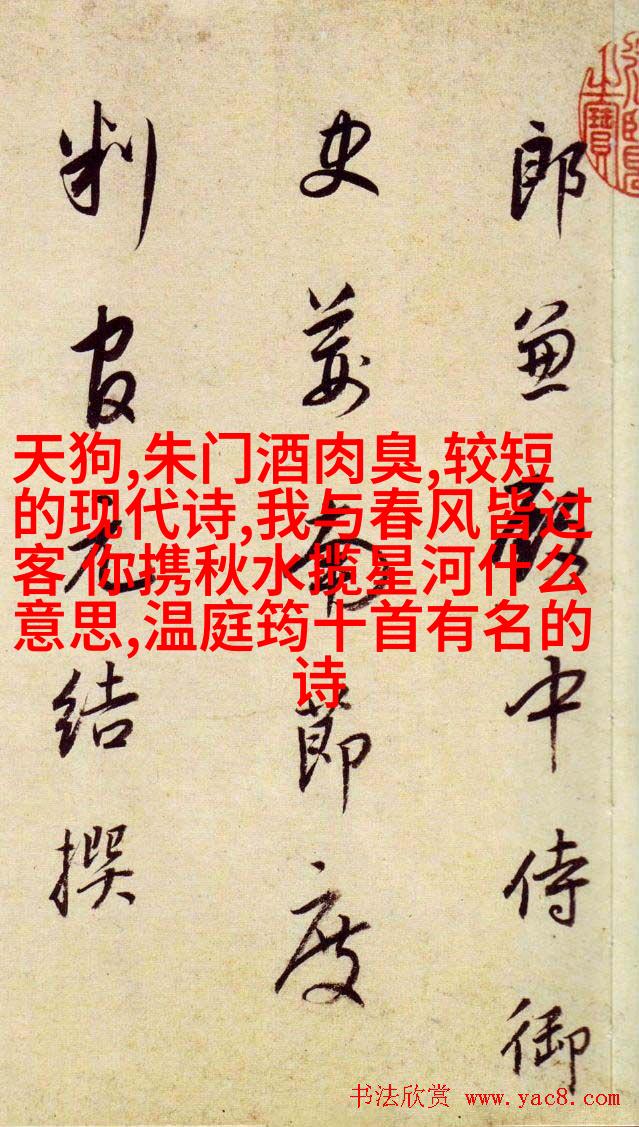 郎兼殿中侍御
史荆南節度
判官元結撰
天狗,朱门酒肉臭,较短
的现代诗,我与春风皆过
客 你携秋水揽星河什么
意思,温庭筠十首有名的
诗
书法欣赏 www.yac8.com